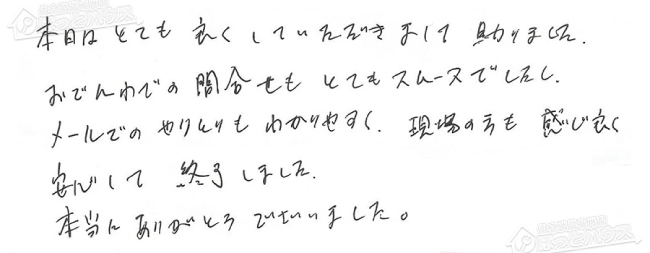 本日はとても良くしていただきまして助かりました.
おでんわでの問合せもとてもスムースでしたし.
メールでのやりとりもわかりやすく. 現場の方も感じ良く
安心して終了しました.
本当にありがとうございました。